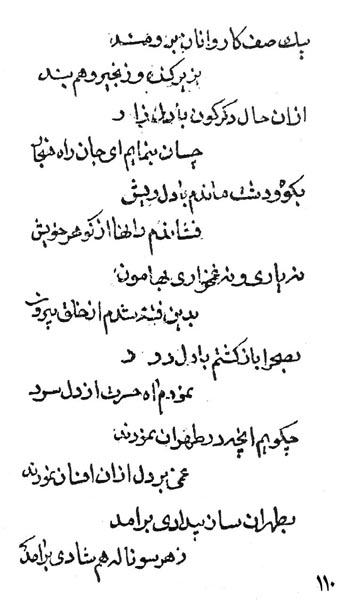 یك صف کاروانان برومند
بزیر کند و زنجیر و هم بند
ازان حال دگرگون بادل زار
چسان بنمایم ای جان راه هنجار
بکوه ودشت ماندم بادل ریش
فشاندم رانها از گوهر خویش
نه یاری و نه غمخواری بهامون
بدین فتنه شدم از خلق بیرون
بصحرا باز گشتم بادل درد
نمودم آه حسرت از دل سرد
چگویم انچه در طهران نمودند
غمی بر دل ازان افنان نمودند
بطهران سان بیداری برامد
ز هر سو ناله هم شادی برامد
۱۱۰